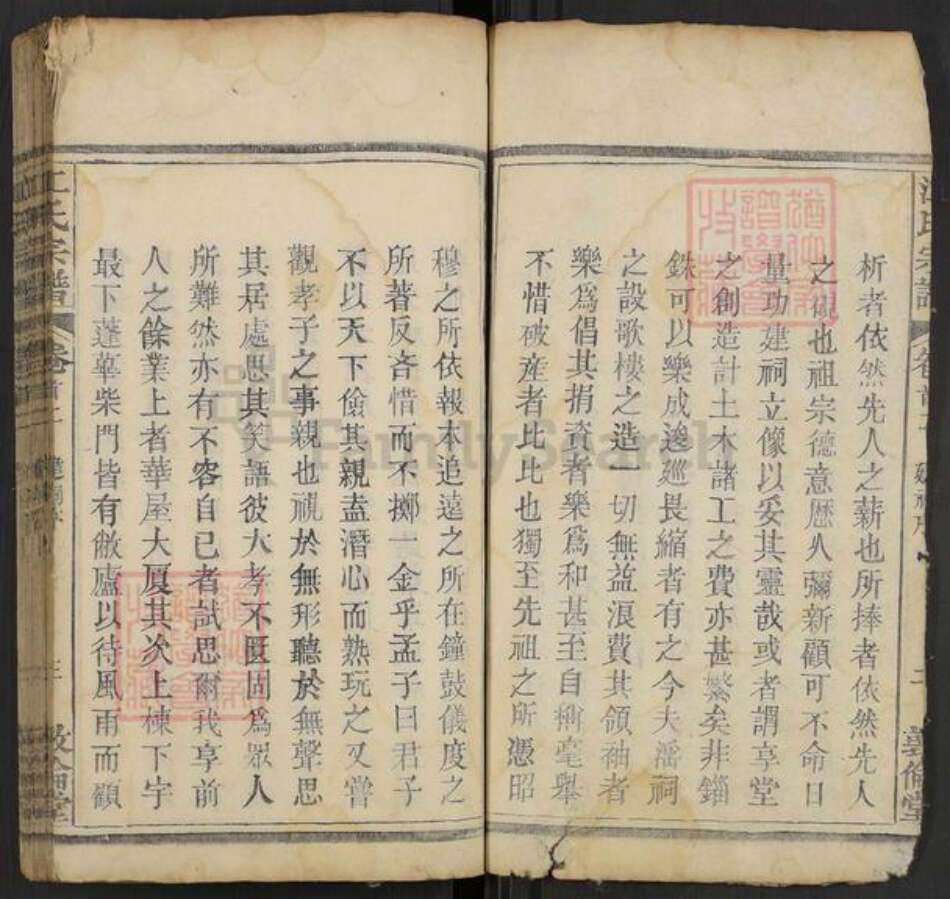 析者依然先人之薪也所捧者依然先人
之也祖宗德意歷久彌新顧可不命日
量功建祠立像以妥其靈哉或者謂享堂
之創造計土木諸工之費亦甚繁矣非錙
銖可以樂成逡廵畏縮者有之今夫濡祠
之設歌樓之造一切無益浪費其領袖者
樂爲倡其捐資者樂爲和甚至自毫舉
不惜破産者比比也獨至先祖之所憑昭
穆之所依報本追遠之所在鐘鼓儀度之
所著反吝惜而不擲一金乎孟子曰君子
不以天下儉其親盍潛心而熟玩之又嘗
觀孝子之事親也視於無形聽於無聲思
其居處思其笑語彼大孝不匱固爲眾人
所難然亦有不容自已者試思爾我享前
人之餘業上者華屋大厦其次上棟下宇
最下蓬蓽柴門皆有敝廬以待風雨而顧
江氏宗譜
卷首二
建祠序
三
敦倫堂
FamilySearch